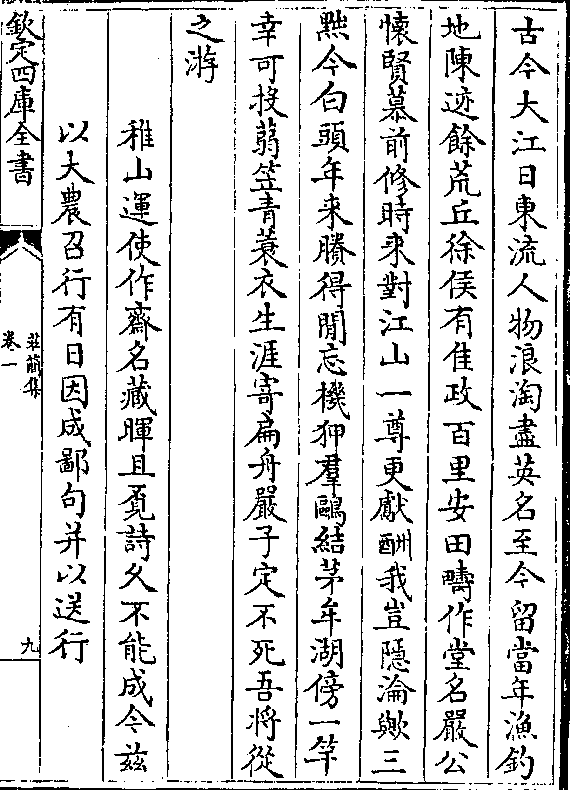 古今大江日東流人物浪淘盡英名至今留當年漁釣
地陳迹餘荒丘徐侯有佳政百里安田疇作堂名嚴公
懷賢慕前修時來對江山一尊更獻酬我豈隱淪歟三
黜今白頭年来賸得閒忘機狎羣鷗結茅牟湖傍一竿
幸可投蒻笠青蓑衣生涯寄扁舟嚴子定不死吾將從
之游
稚山運使作齋名藏暉且覔詩乆不能成今兹
以大農召行有日因成鄙句并以送行
欽定四庫全書
莊簡集
卷一
九